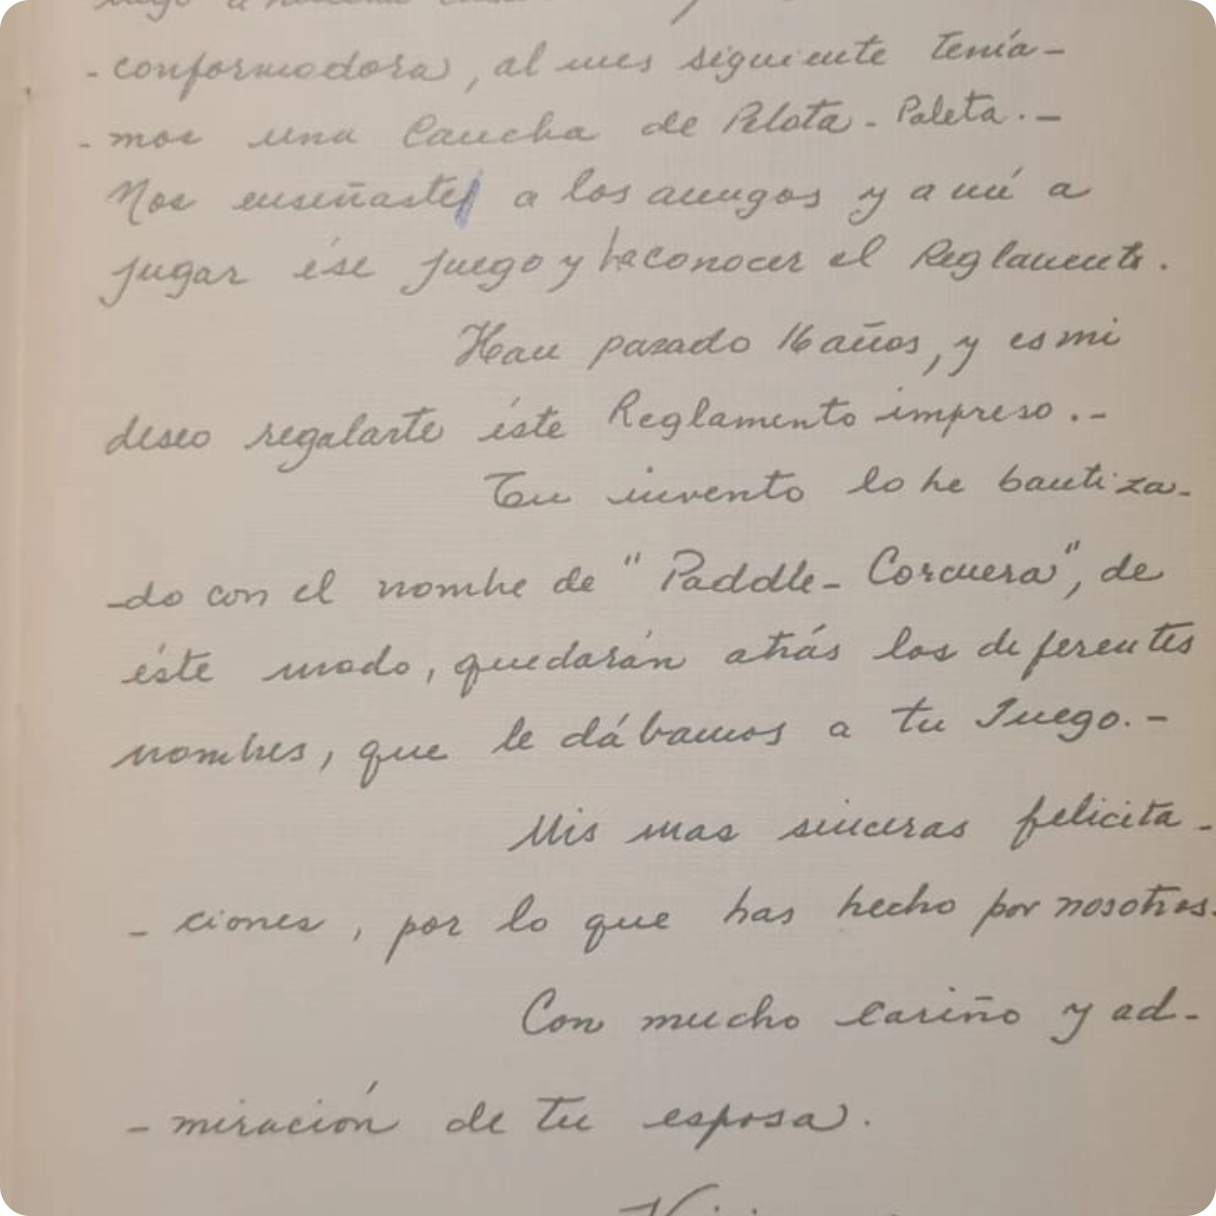 - conformodora, al mes siguiente tenía-
- mos una Cancha de Pelota - Paleta. -
Nos enseñaste a los amigos y a mí a
jugar ése juego y ha conocer el Reglamento.
Han pasado 16 años, y es mi
deseo regalarte éste Reglamento impreso. -
Tu invento lo he bautiza-
-do con el nombre de "Paddle - Corcuera", de
éste modo, quedarán atrás los diferentes
nombres, que le dábamos a tu Juego. -
Mis mas sinceras felicita-
- ciones, por lo que has hecho por nosotros.
Con mucho cariño y ad-
- miración de tu esposa.